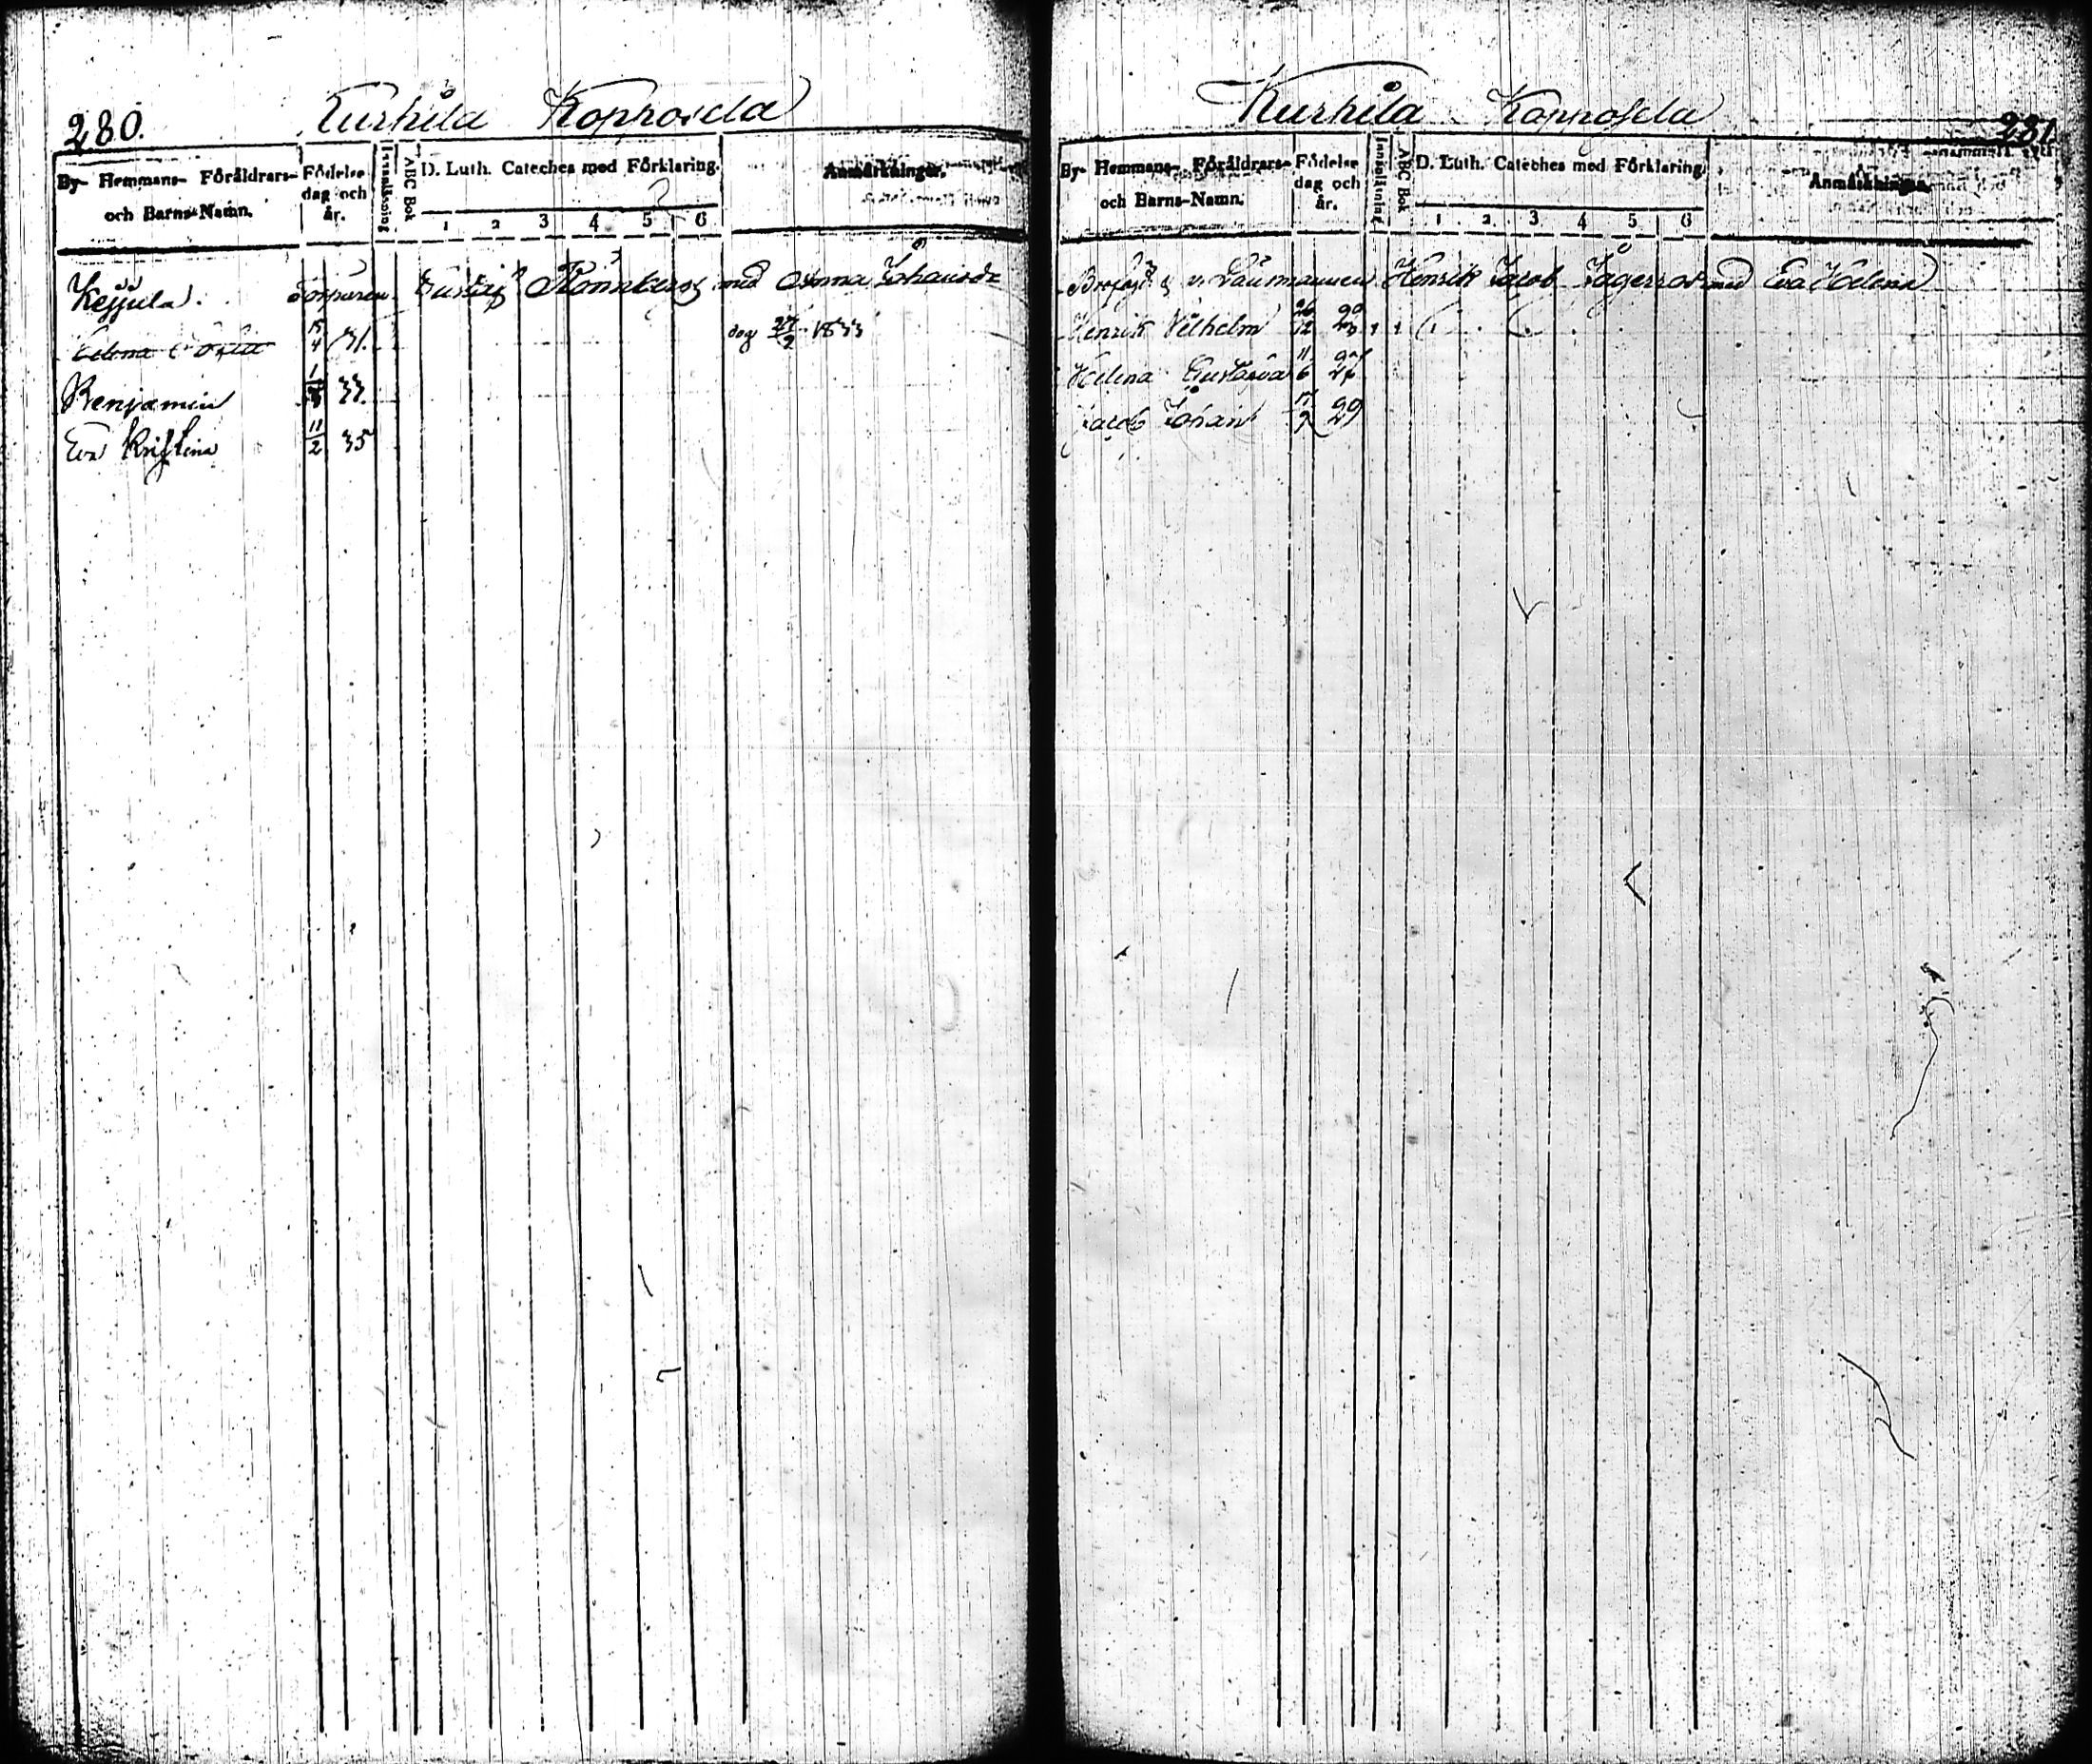 280.
Kurhila Koppoisela
By- Hemmans- Föräldrars- och Barns-Namn.
Födelse dag och år.
Innanläsning
ABC Bok
D. Luth. Cateches med Förklaring.
1 2 3 4 5 6
Anmärkningar.
Keijula. Torparen Gustaf Rönnberg med Anna Johansdr
Helena 15/4 31. dog 27/9 1833
Benjamin 33
Eva Kristina 11/2 35
281
Kurhila Koppoisela
By- Hemmans- Föräldrars- och Barns-Namn.
Födelse dag och år.
Innanläsning
ABC Bok
D. Luth. Cateches med Förklaring
1 2 3 4 5 6
Anmärkningar.
Henrik Jacob Jägerroos med Eva Helena
Henrik Vilhelm 26/12
Helena Gustava 11/6
Jacob Johan 29